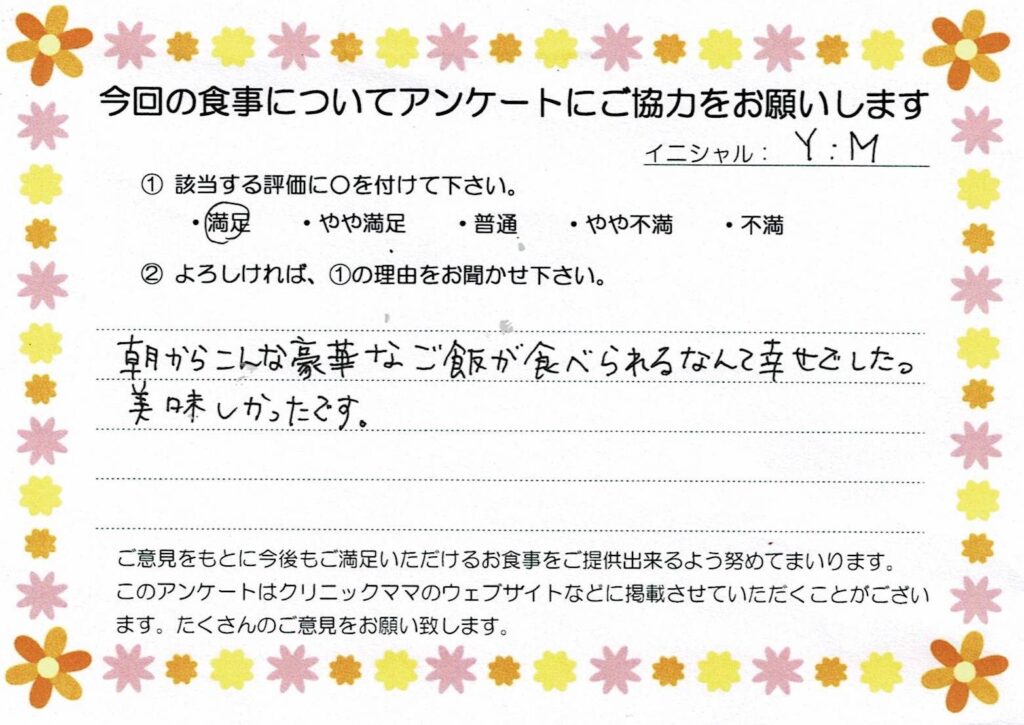 今回の食事についてアンケートにご協力をお願いします
イニシャル： Y:M
① 該当する評価に〇を付けて下さい。
・満足 ・やや満足 ・普通 ・やや不満 ・不満
② よろしければ、①の理由をお聞かせ下さい。
朝からこんな豪華なご飯が食べられるなんて幸せでした。
美味しかったです。
ご意見をもとに今後もご満足いただけるお食事をご提供出来るよう努めてまいります。
このアンケートはクリニックママのウェブサイトなどに掲載させていただくことがござい
ます。たくさんのご意見をお願い致します。